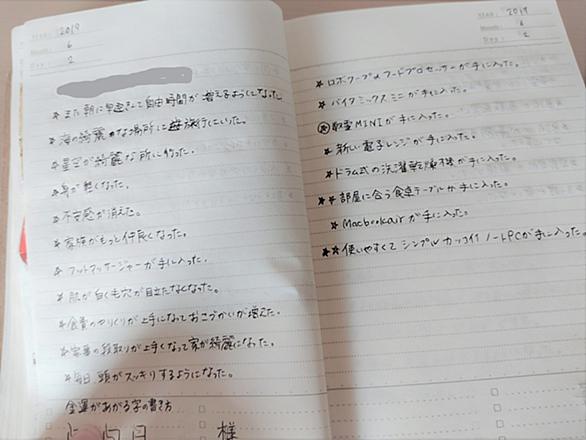 2019
6
2
★また朝に早起きして自由時間が増えるようになった。
★海の綺麗な場所に旅行にいった。
★星空が綺麗な所に行った。
★身が軽くなった。
★不安感が消えた。
★家族がもっと仲良くなった。
★フットマッサージャーが手に入った。
★肌が白く毛穴が目立たなくなった。
★食費のやりくりが上手になっておこづかいが増えた。
★家事の段取りが上手くなって家が綺麗になった。
★毎日、頭がスッキリするようになった。
金運があがる字の書き方
様
2019
6
2
★ロボクープのフードプロセッサーが手に入った。
★バイタミックスミニが手に入った。
MINIが手に入った。
★新しい電子レンジが手に入った。
★ドラム式の洗濯乾燥機が手に入った。
★★部屋に合う食卓テーブルが手に入った。
★Macbookairが手に入った。
★★使いやすくてシンプルカッコイイノートPCが手に入った。